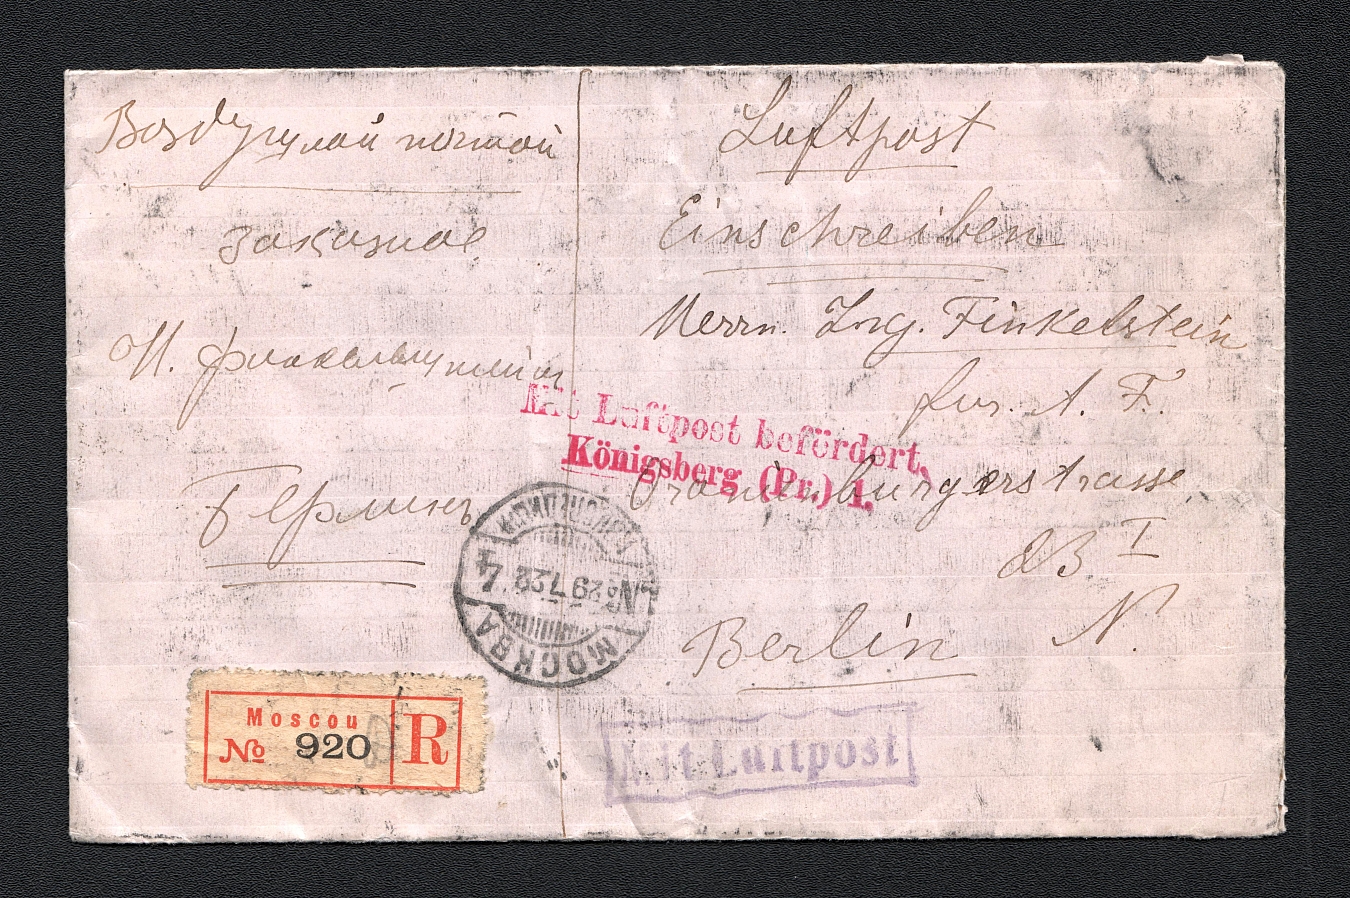 Воздушной почтой
заказное
И. Финкельштейн
Берлинъ
Luftpost
Einschreiben
Herrn. Ing. Finkelstein
A. F.
Oranienburgerstrasse
I
Berlin N.
Mit Luftpost befördert,
Königsberg (Pr.) 1.
МОСКВА
29.7.22
4
Moscou
№ 920
R
Mit Luftpost